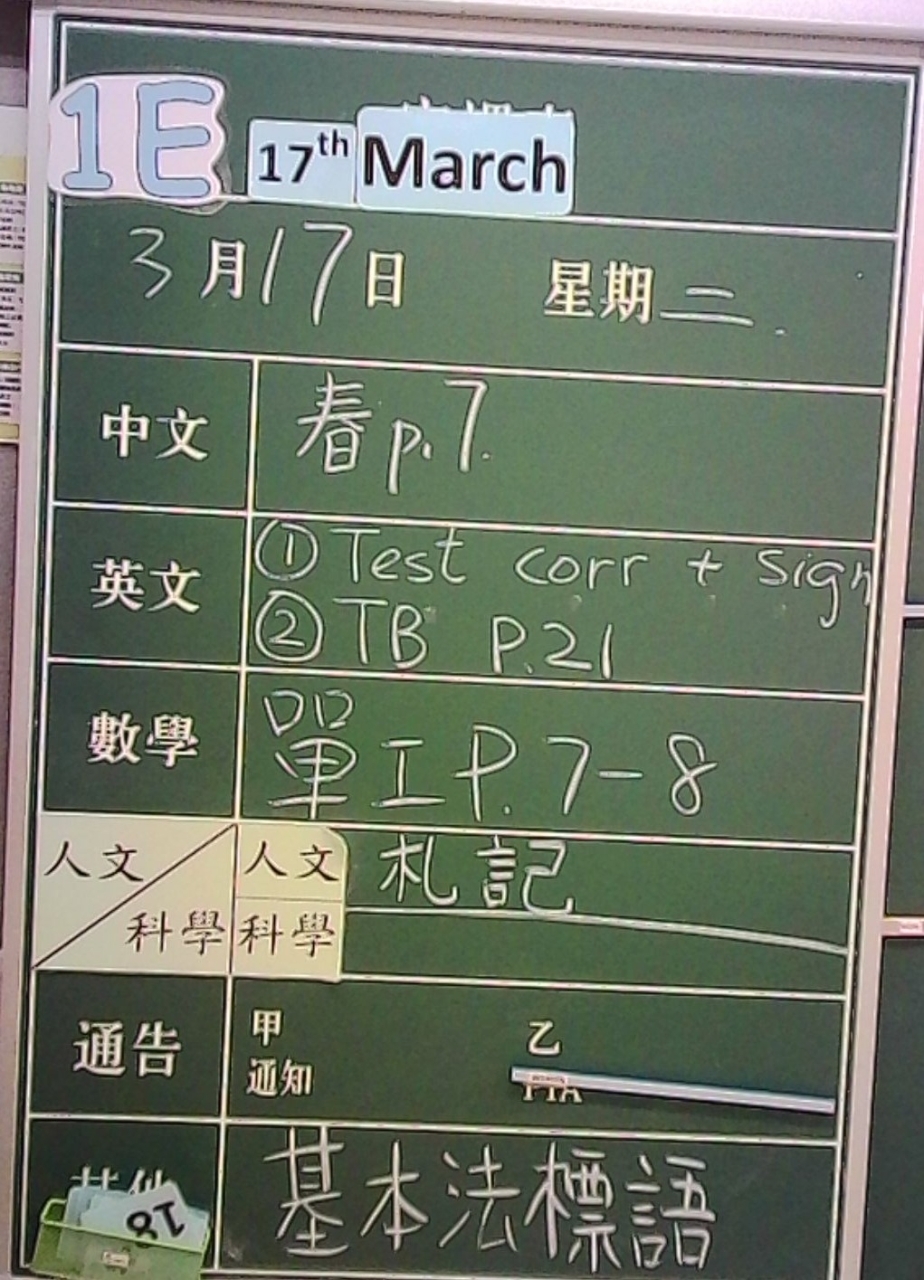 1E 17th March
3月17日 星期二.
中文 春 p.7.
英文 ① Test corr + sign
② TB P.21
數學 單工 P.7-8
人文 人文 札記
科學 科學
通告 甲 乙
通知 PTA
其他 基本法標語
18